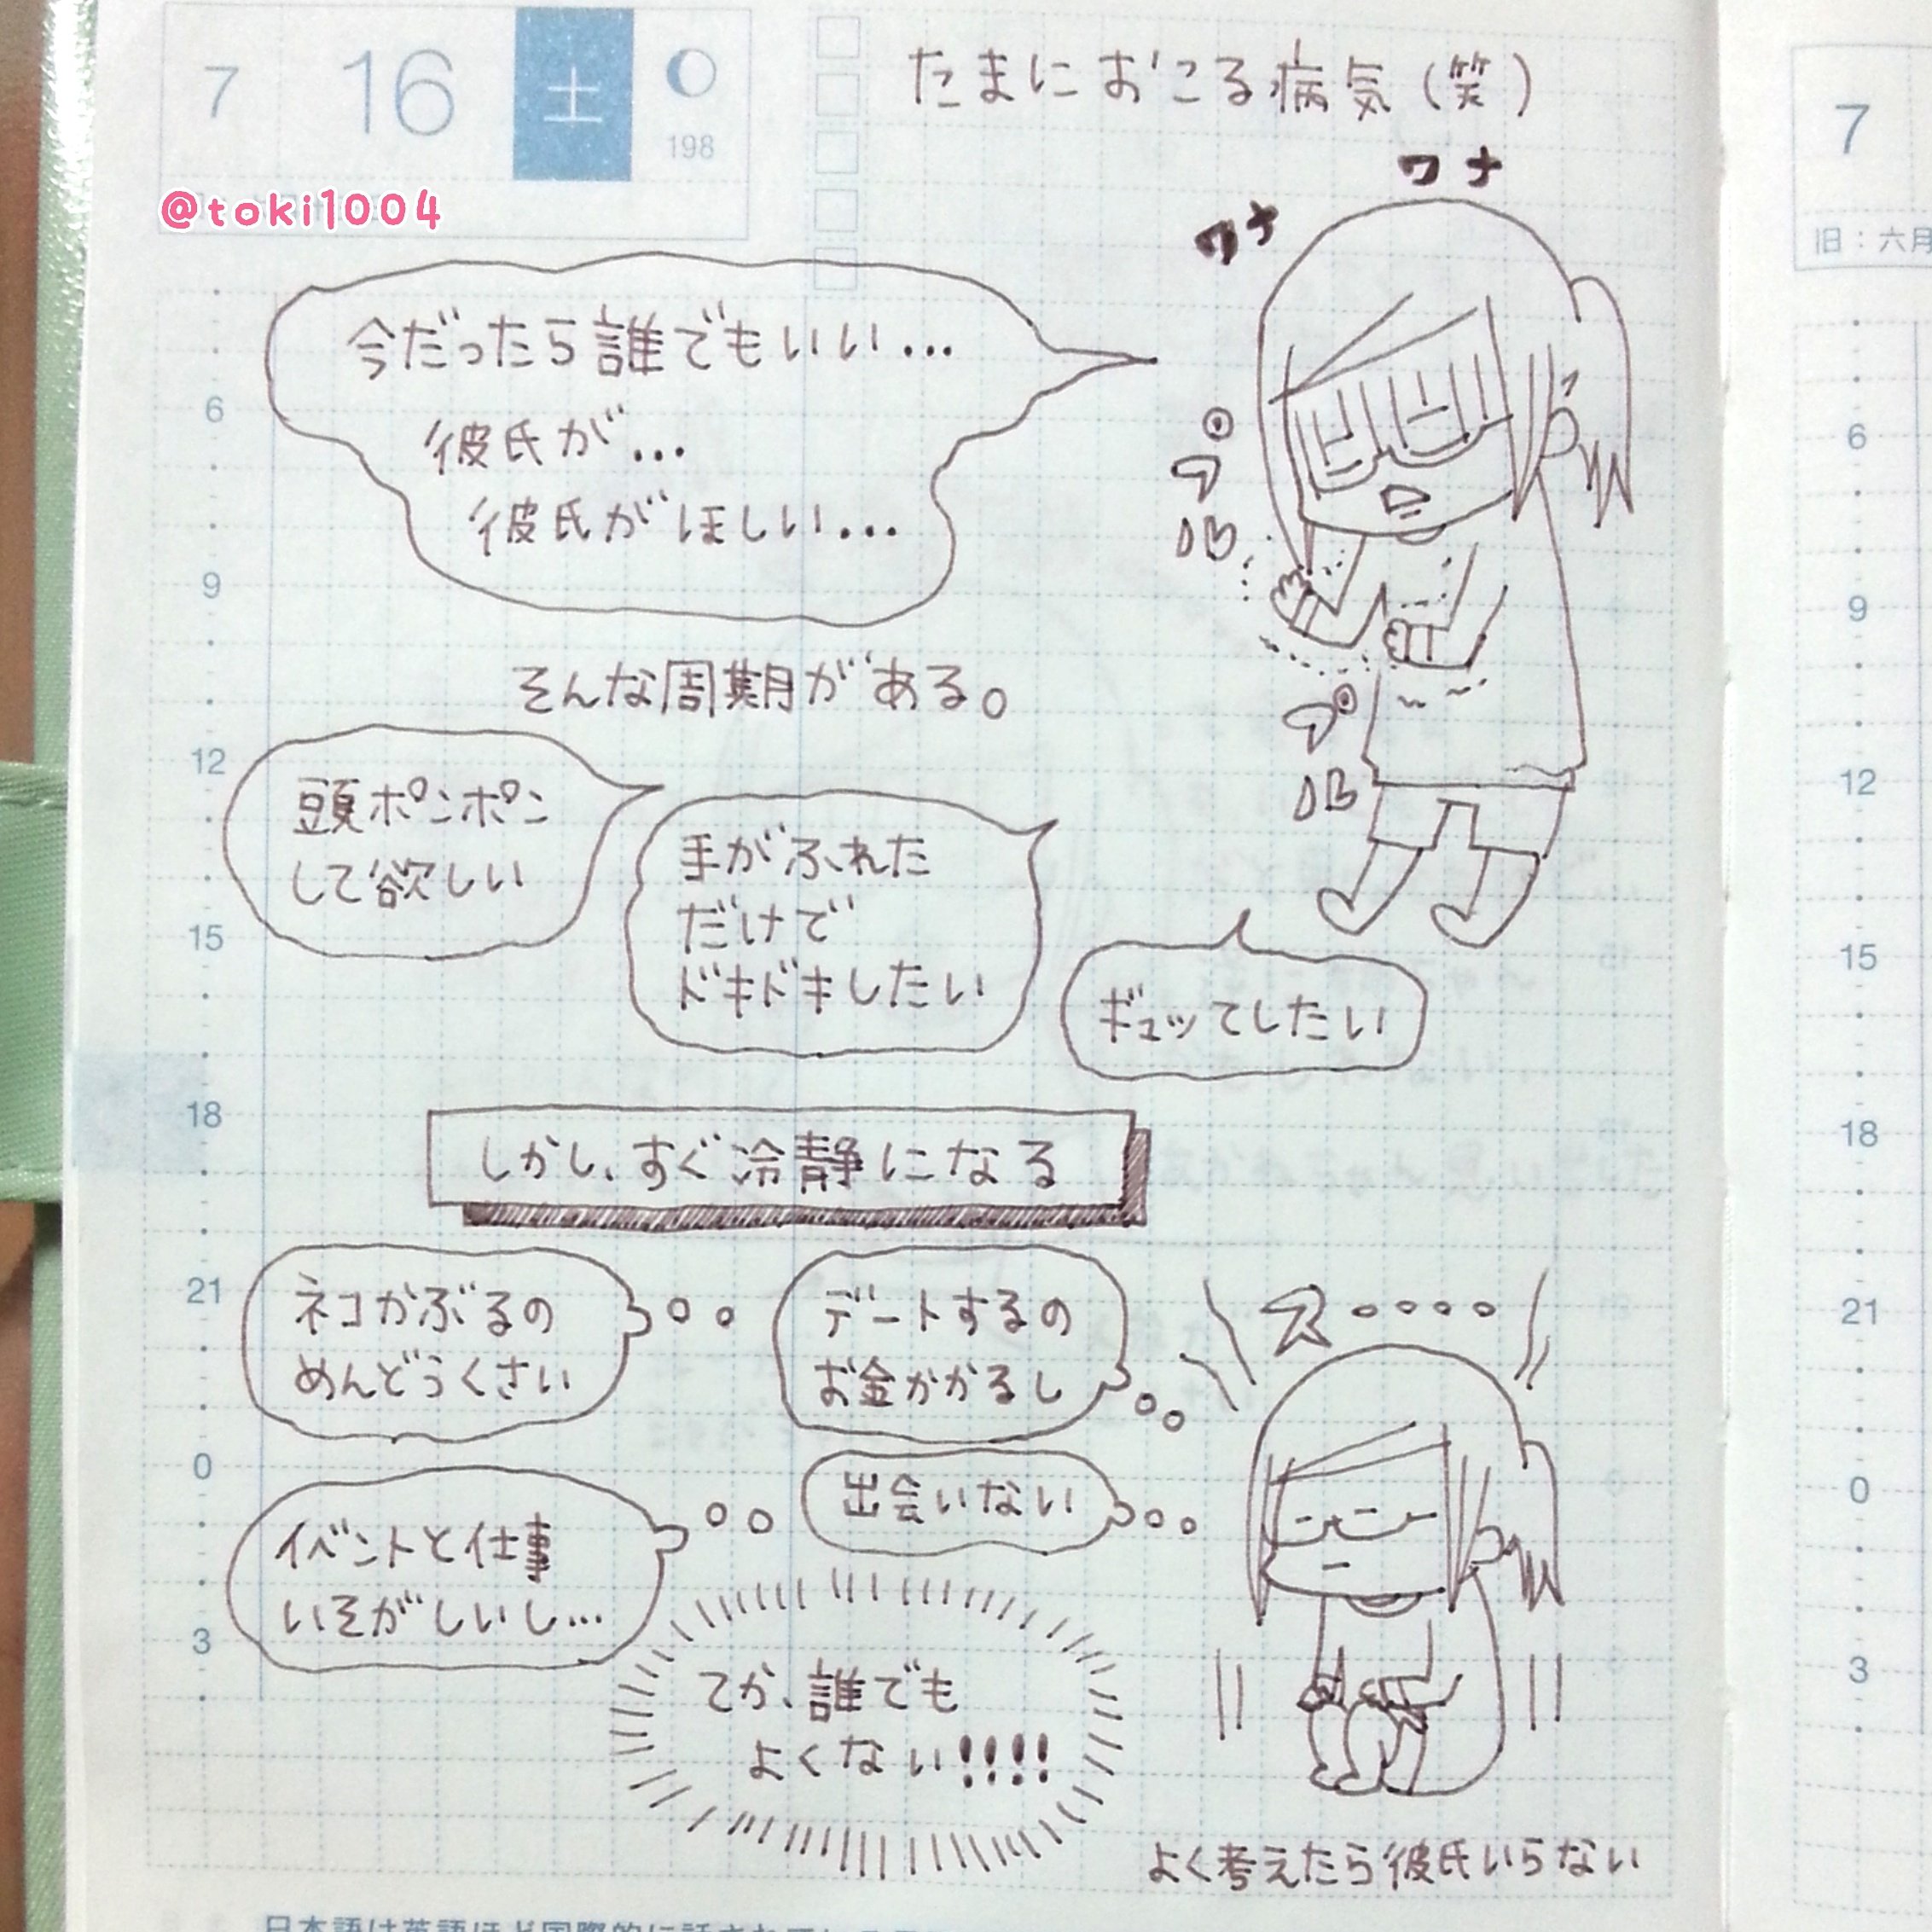 7 16 土
198
@toki1004
たまにおこる病気(笑)
ワナ
ワナ
今だったら誰でもいい…
彼氏が…
彼氏がほしい…
プルプル
プルプル
そんな周期がある。
頭ポンポン
して欲しい
手がふれた
だけで
ドキドキしたい
ギュッてしたい
しかし、すぐ冷静になる
ネコかぶるの
めんどうくさい
デートするの
お金かかるし
ス。。。。
出会いない
イベントと仕事
いそがしいし…
てか、誰でも
よくない!!!!
よく考えたら彼氏いらない
6
9
12
15
18
21
0
3
7
旧:六月
6
9
12
15
18
21
0
3